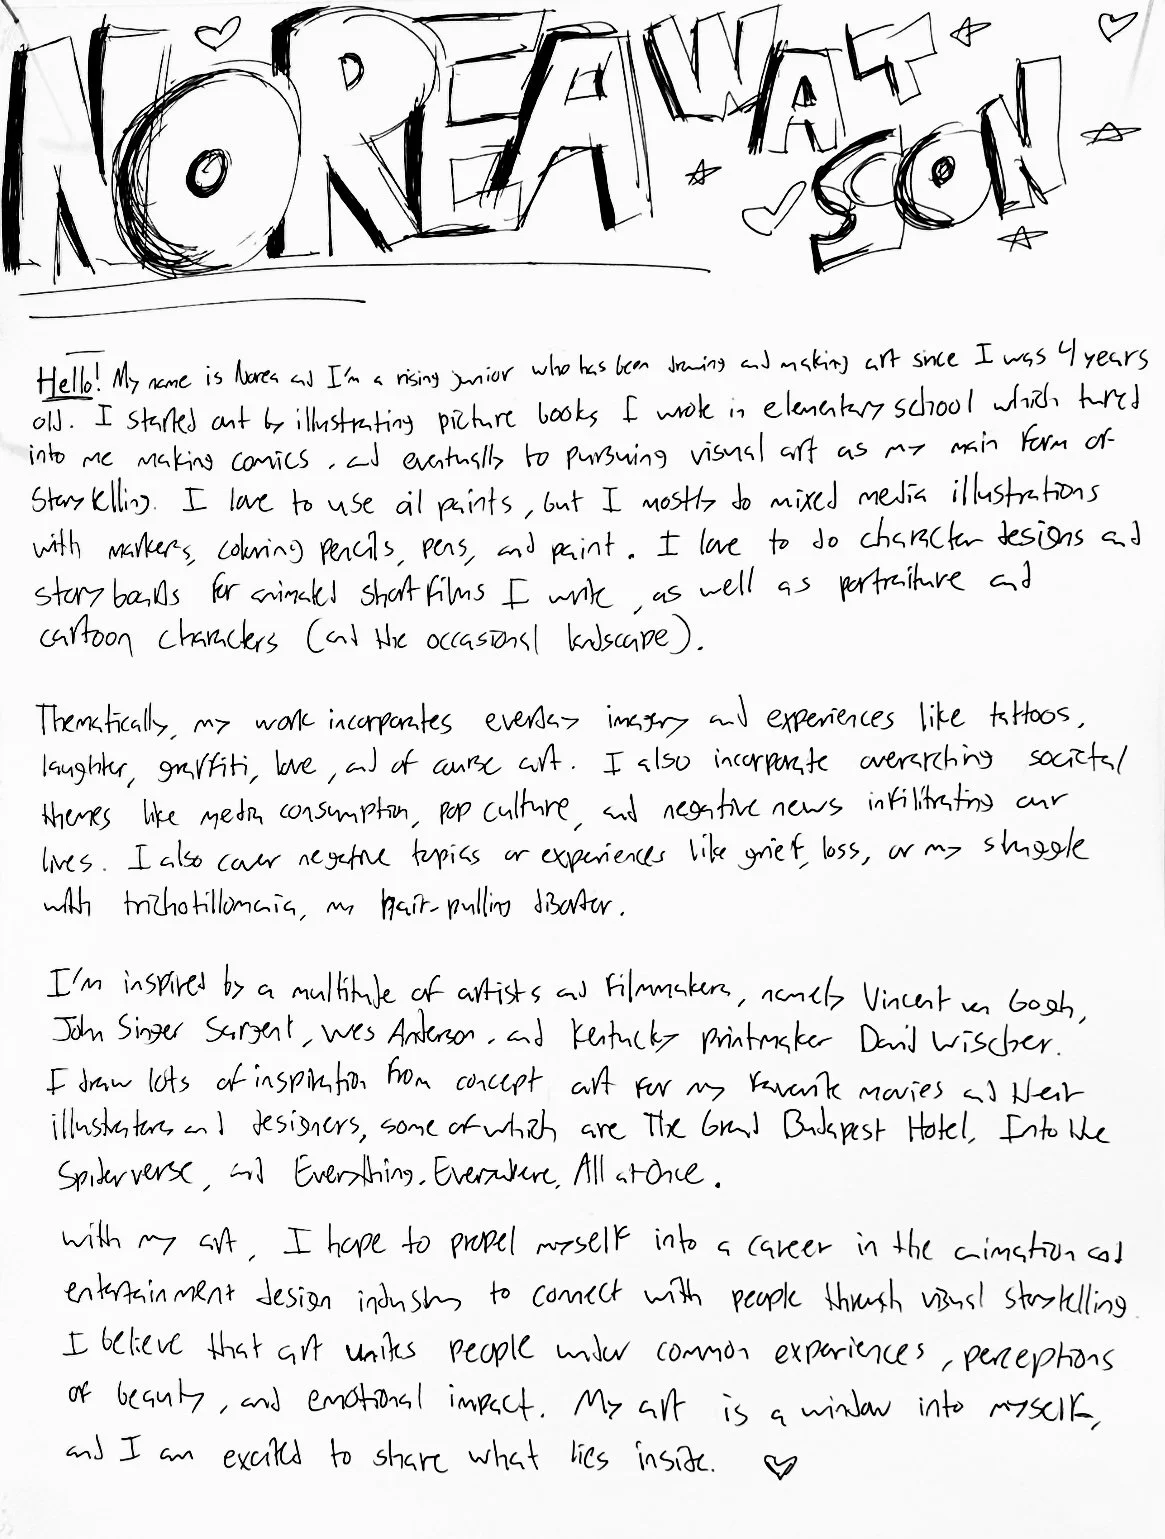 NOREA WATSON
Hello! My name is Norea and I'm a rising junior who has been drawing and making art since I was 4 years
old. I started out by illustrating picture books I wrote in elementary school which turned
into me making comics, and eventually to pursuing visual art as my main form of
storytelling. I love to use oil paints, but I mostly do mixed media illustrations
with markers, coloring pencils, pens, and paint. I love to do character designs and
storyboards for animated short films I write, as well as portraiture and
cartoon characters (and the occasional landscape).
Thematically, my work incorporates everyday imagery and experiences like tattoos,
laughter, graffiti, love, and of course art. I also incorporate overarching societal
themes like media consumption, pop culture, and negative news infilitrating our
lives. I also cover negative topics or experiences like grief, loss, or my struggle
with trichotillomania, my hair-pulling disorder.
I'm inspired by a multitude of artists and filmmakers, namely Vincent van Gogh,
John Singer Sargent, Wes Anderson, and Kentucky printmaker David Wischer.
I draw lots of inspiration from concept art for my favorite movies and their
illustrators and designers, some of which are The Grand Budapest Hotel, Into the
Spiderverse, and Everything, Everywhere, All at Once.
With my art, I hope to propel myself into a career in the animation and
entertainment design industry to connect with people through visual storytelling.
I believe that art unites people under common experiences, perceptions
of beauty, and emotional impact. My art is a window into myself,
and I am excited to share what lies inside.